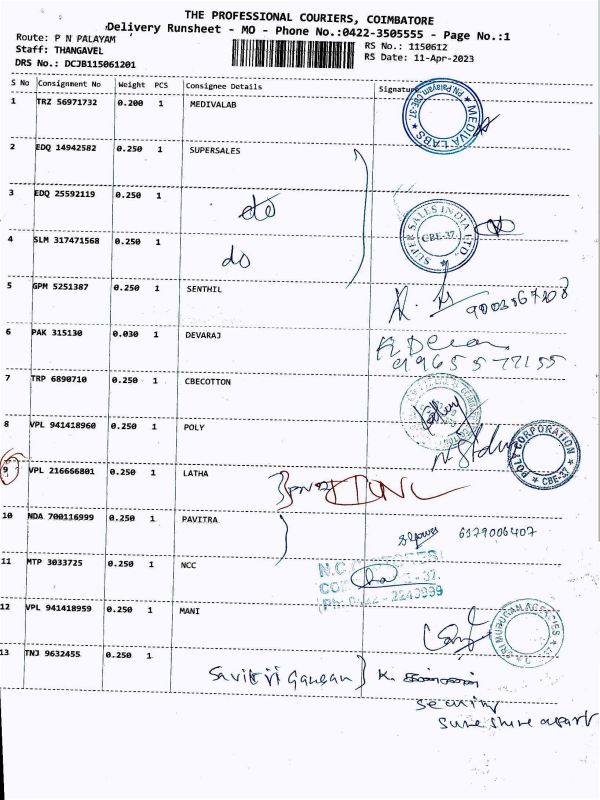 THE PROFESSIONAL COURIERS, COIMBATORE
Delivery Runsheet - MO - Phone No.:0422-3505555 - Page No.:1
Route: P N PALAYAM
Staff: THANGAVEL
DRS No.: DCJB115061201
RS No.: 1150612
RS Date: 11-Apr-2023
S No Consignment No Weight PCS Consignee Details Signature
1 TRZ 56971732 0.200 1 MEDIVALAB
MEDIVA LABS PN Palayam, CBE-37.
2 EDQ 14942582 0.250 1 SUPERSALES
3 EDQ 25592119 0.250 1 do
SUPER SALES INDIA LTD., CBE-37.
4 SLM 317471568 0.250 1 do
5 GPM 5251387 0.250 1 SENTHIL
6 PAK 315130 0.030 1 DEVARAJ
7 TRP 6890710 0.250 1 CBECOTTON
8 VPL 941418960 0.250 1 POLY
POLY CORPORATION CBE-37
9 VPL 216666801 0.250 1 LATHA
10 NDA 700116999 0.250 1 PAVITRA
6179006407
11 MTP 3033725 0.250 1 NCC
12 VPL 941418959 0.250 1 MANI
SRI MURUGAN AGENCIES
13 TNJ 9632455 0.250 1